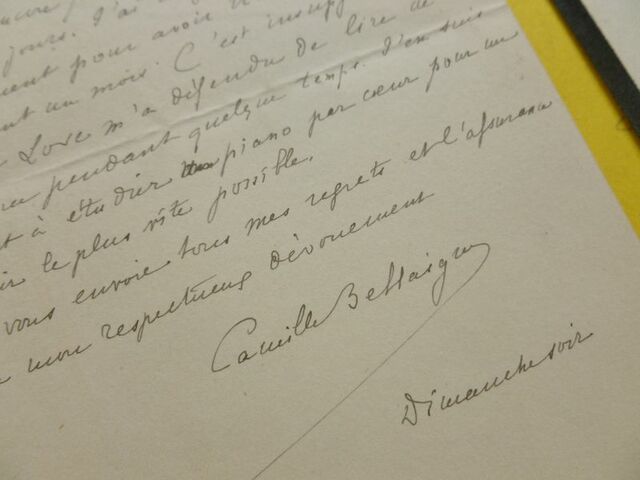 jours. J'ai
pour avoir
un mois. C'est insupp
Love m'a défendu de lire de
pendant quelque temps. J'en suis
à étudier piano par cœur pour un
le plus vite possible.
vous envoie tous mes regrets et l'assurance
mon respectueux dévouement
Camille Bellaigue
Dimanche soir